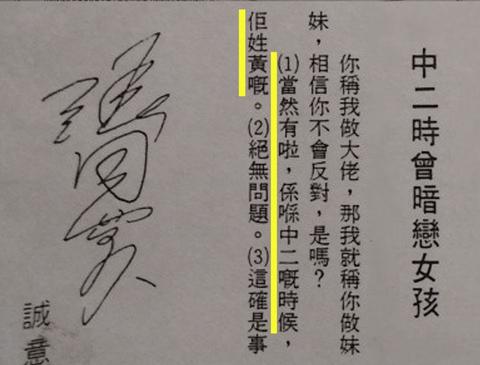 中二時曾暗戀女孩
你稱我做大佬，那我就稱你做妹
妹，相信你不會反對，是嗎？
⑴當然有啦，係喺中二嘅時候，
佢姓黃嘅。⑵絕無問題。⑶這確是事
誠意